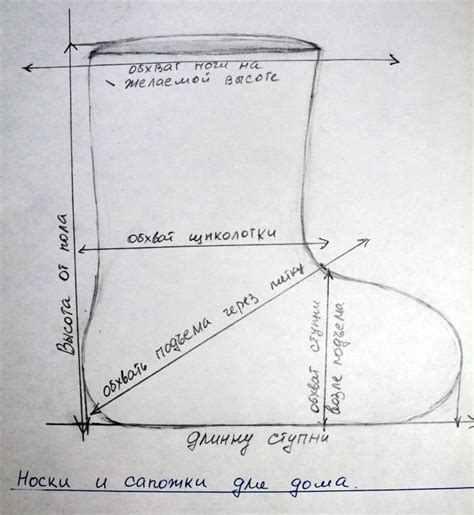 обхват ноги на
желаемой высоте
Высота от пола
обхват щиколотки
обхвать подъема через пятку
обхват ступни
возле подъема
длинну ступни
Носки и сапожки для дома.